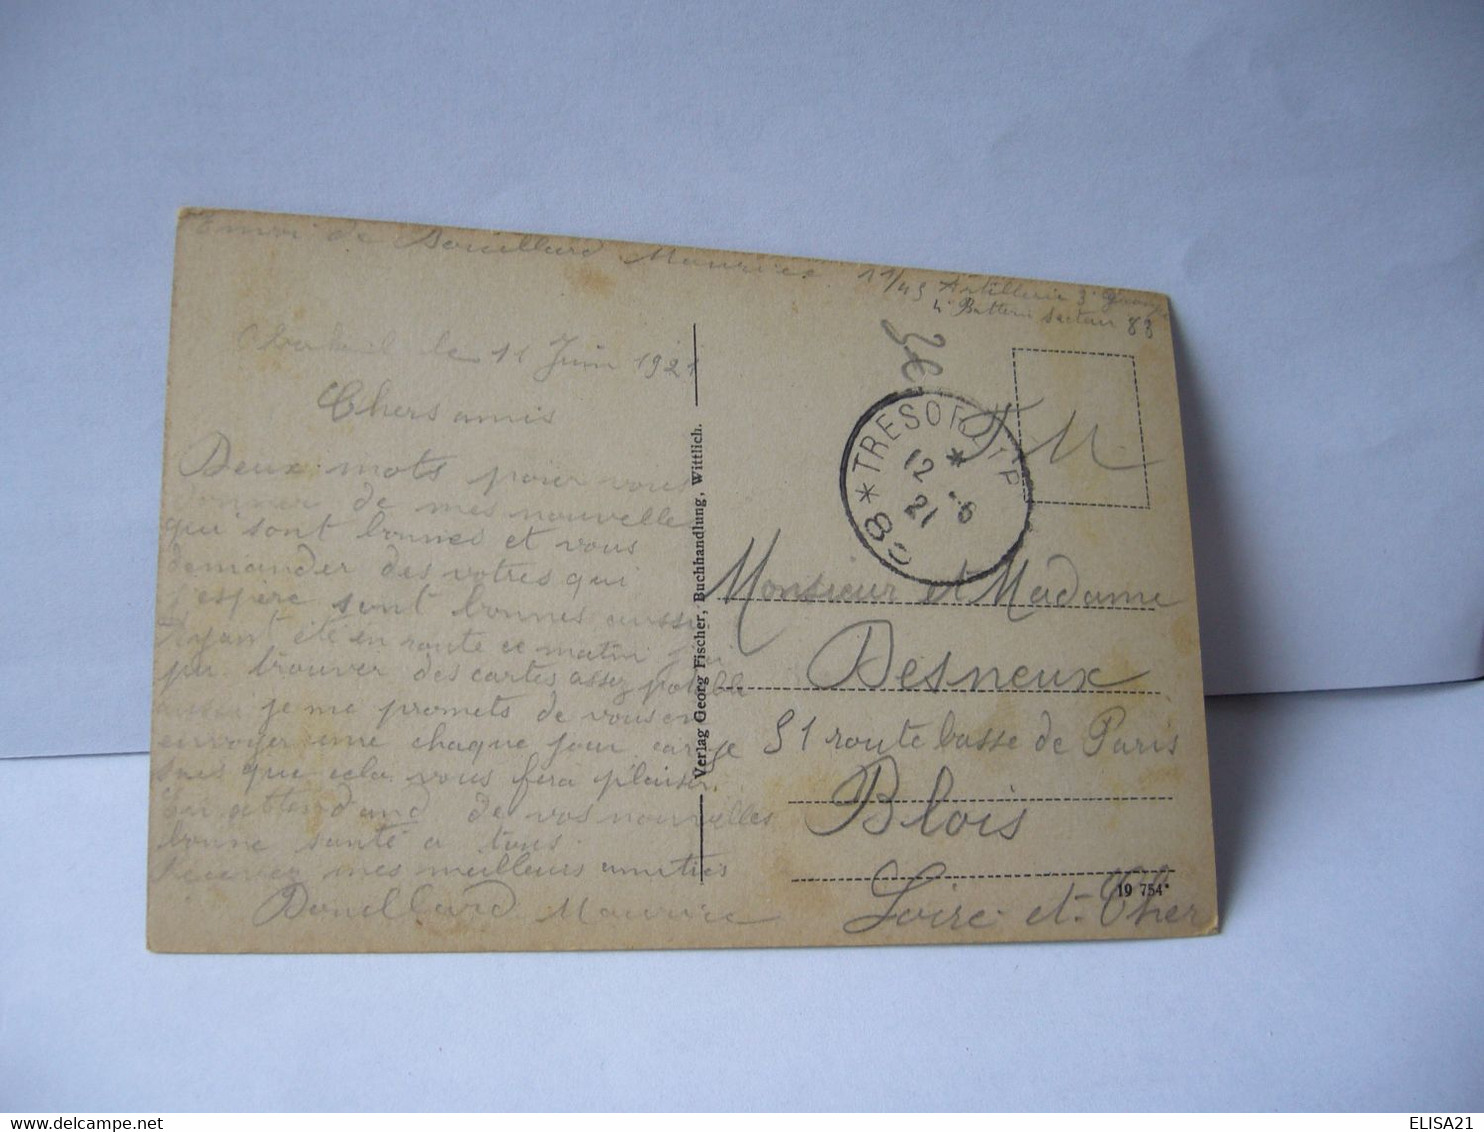 Envoi de Bouillard Maurice 11/45 Artillerie 3e Group
4e Batterie Secteur 88
le 11 Juin 1921
Chers amis
Deux mots pour vous
donner de mes nouvelles
qui sont bonnes et vous
demander des votres qui
j'espère sont bonnes aussi
Ayant été en route ce matin j'ai
pu trouver des cartes assez potable
aussi je me promets de vous en
envoyer une chaque jour car je
sais que cela vous fera plaisir.
de vos nouvelles
bonne santé a tous.
Recevez mes meilleurs amitiés
Bouillard Maurice
Verlag Georg Fischer, Buchhandlung, Wittlich.
F M
* TRESOR ET P * 
12 -6
21
Monsieur et Madame
Desneux
51 route basse de Paris
Blois
Loire et Cher
19 754*
www.delcampe.net
ELISA21